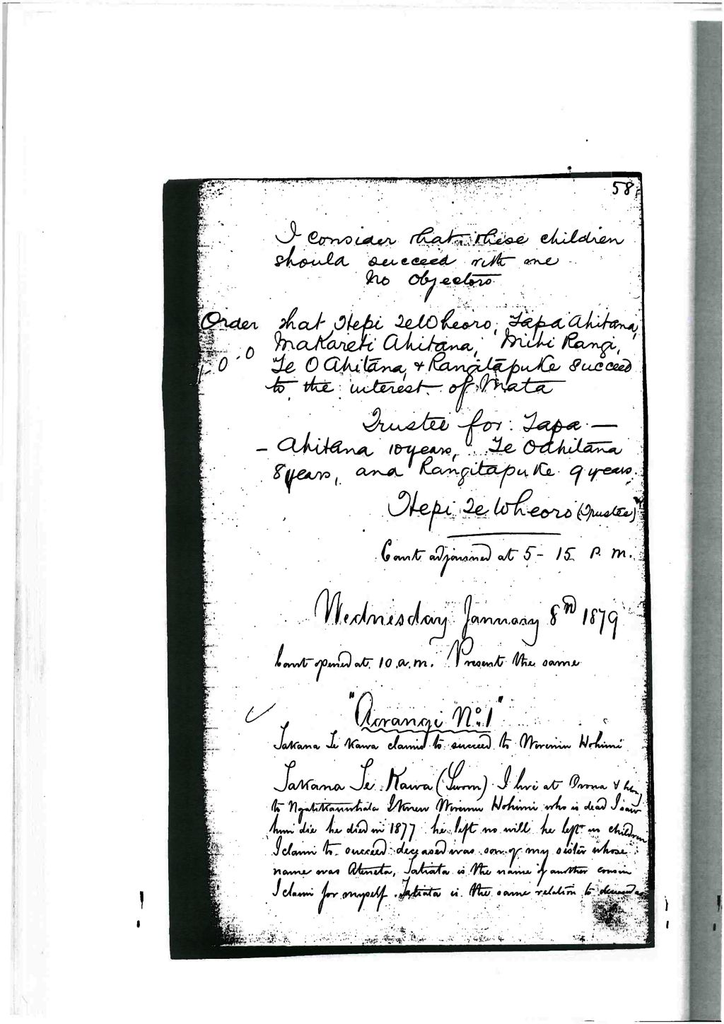 58
I consider that these children
should succeed with me
No objectors
Order that Hepi Te Wheoro, Tapa Ahitana,
1-0-0 Makareti Ahitana, Mihi Rangi,
Te O Ahitana, & Rangitapuke succeed
to the interest of Mata
Trustee for Tapa —
- Ahitana 10 years, Te O Ahitana
8 years, and Rangitapuke 9 years.
Hepi Te Wheoro (Trustee)
Court adjourned at 5-15 P.m.
Wednesday January 8th 1879
Court opened at 10 a.m. Present the same
"Aorangi No. 1"
Takana Te Kawa claims to succeed to Hohimi
Takana Te Kawa (Sworn) I live at & belong
to I knew Hohimi who is dead I saw
him die he died in 1877 he left no will he left no children
I claim to succeed deceased was son of my sister whose
name was Atereta, Tatiata is the name of another cousin
I claim for myself. Tatiata is the same relation to deceased as